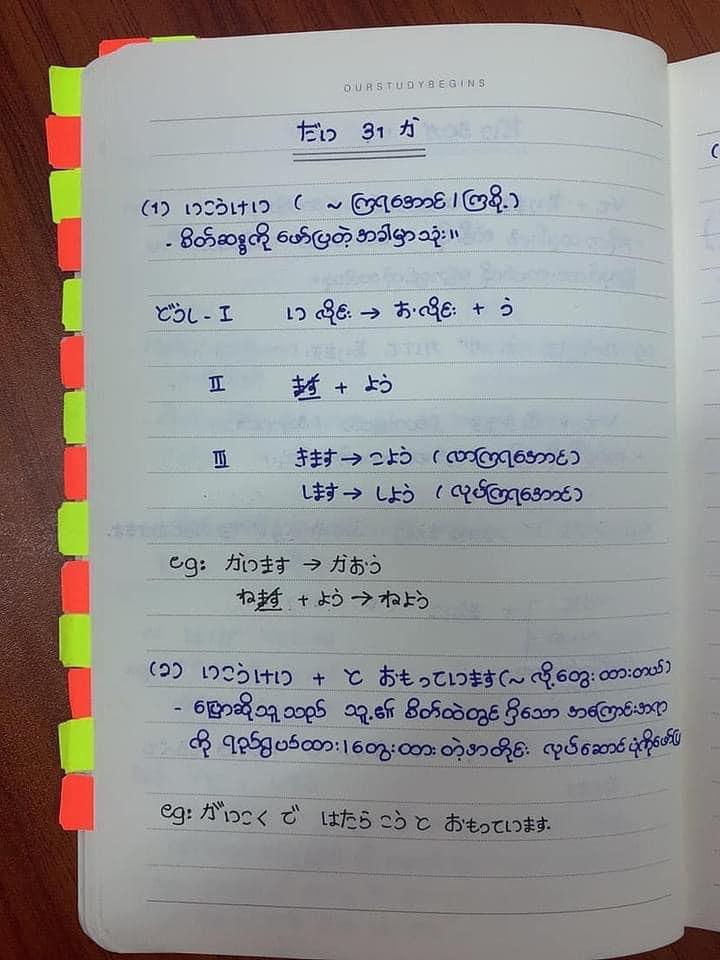 OURSTUDYBEGINS
だい 31 か
(1) いこうけい ( ~ ကြရအောင် / ကြစို့ )
- စိတ်ဆန္ဒကို ဖော်ပြတဲ့ အခါမှာသုံး။
どうし - I い လိုင်း → お လိုင်း + う
II ます + よう
III きます → こよう ( လာကြရအောင် )
します → しよう ( လုပ်ကြရအောင် )
eg: かいます → かおう
ねます + よう → ねよう
(၁) いこうけい + と おもっています (~ လို့တွေးထားတယ်)
- ပြောဆိုသူသည် သူ၏ စိတ်ထဲတွင် ရှိသော အကြောင်းအရာ
ကို ရည်ရွယ်ထား / တွေးထားတဲ့အတိုင်း လုပ်ဆောင်ပုံကိုဖော်ပြ
eg: がいこく で はたらこう と おもっています.